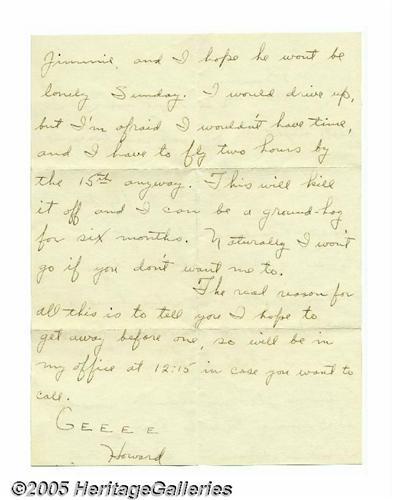 Jimmie, and I hope he wont be
lonely Sunday. I would drive up,
but I'm afraid I wouldn't have time,
and I have to fly two hours by
the 15th anyway. This will kill
it off and I can be a ground-hog
for six months. Naturally I won't
go if you don't want me to.
The real reason for
all this is to tell you I hope to
get away before one, so will be in
my office at 12:15 in case you want to
call.
GEEEE
Howard
©2005 HeritageGalleries